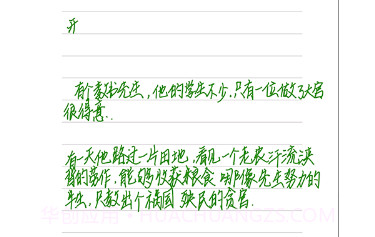 开
有个教书先生，他的学生不少，只有一位做了大官
很得意.
有一天他路过一片田地，看见一个老农汗流浃
背的劳作，能够收获粮食 哪像先生努力的
半生，只教出个祸国殃民的贪官.
华创应用·HUACHUANGZS.COM